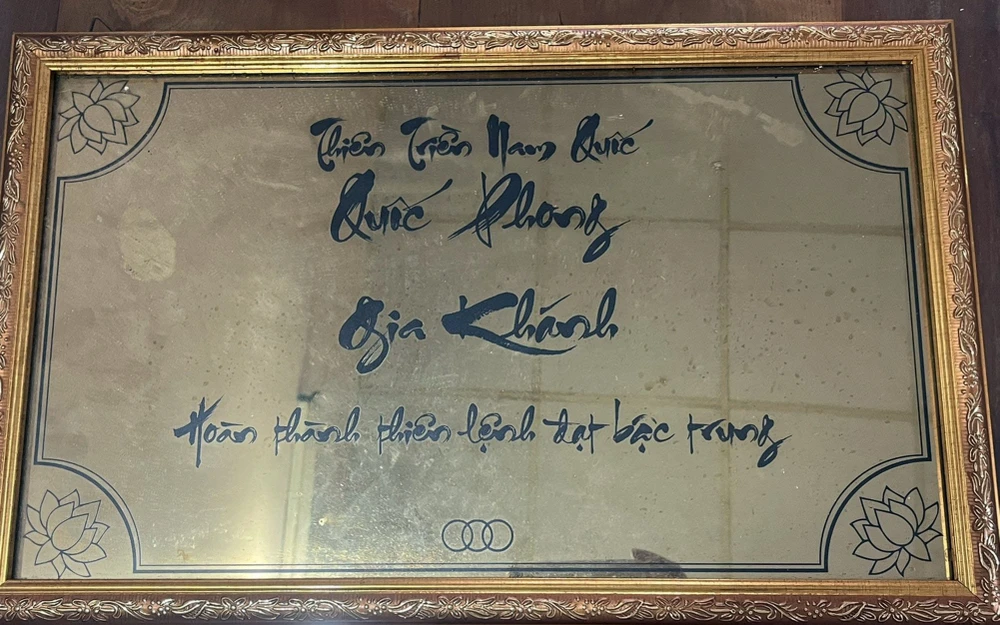 Thiên Triền Nam Quốc
Quốc Phong
Gia Khánh
Hoàn thành thiên lệnh đạt bậc trung